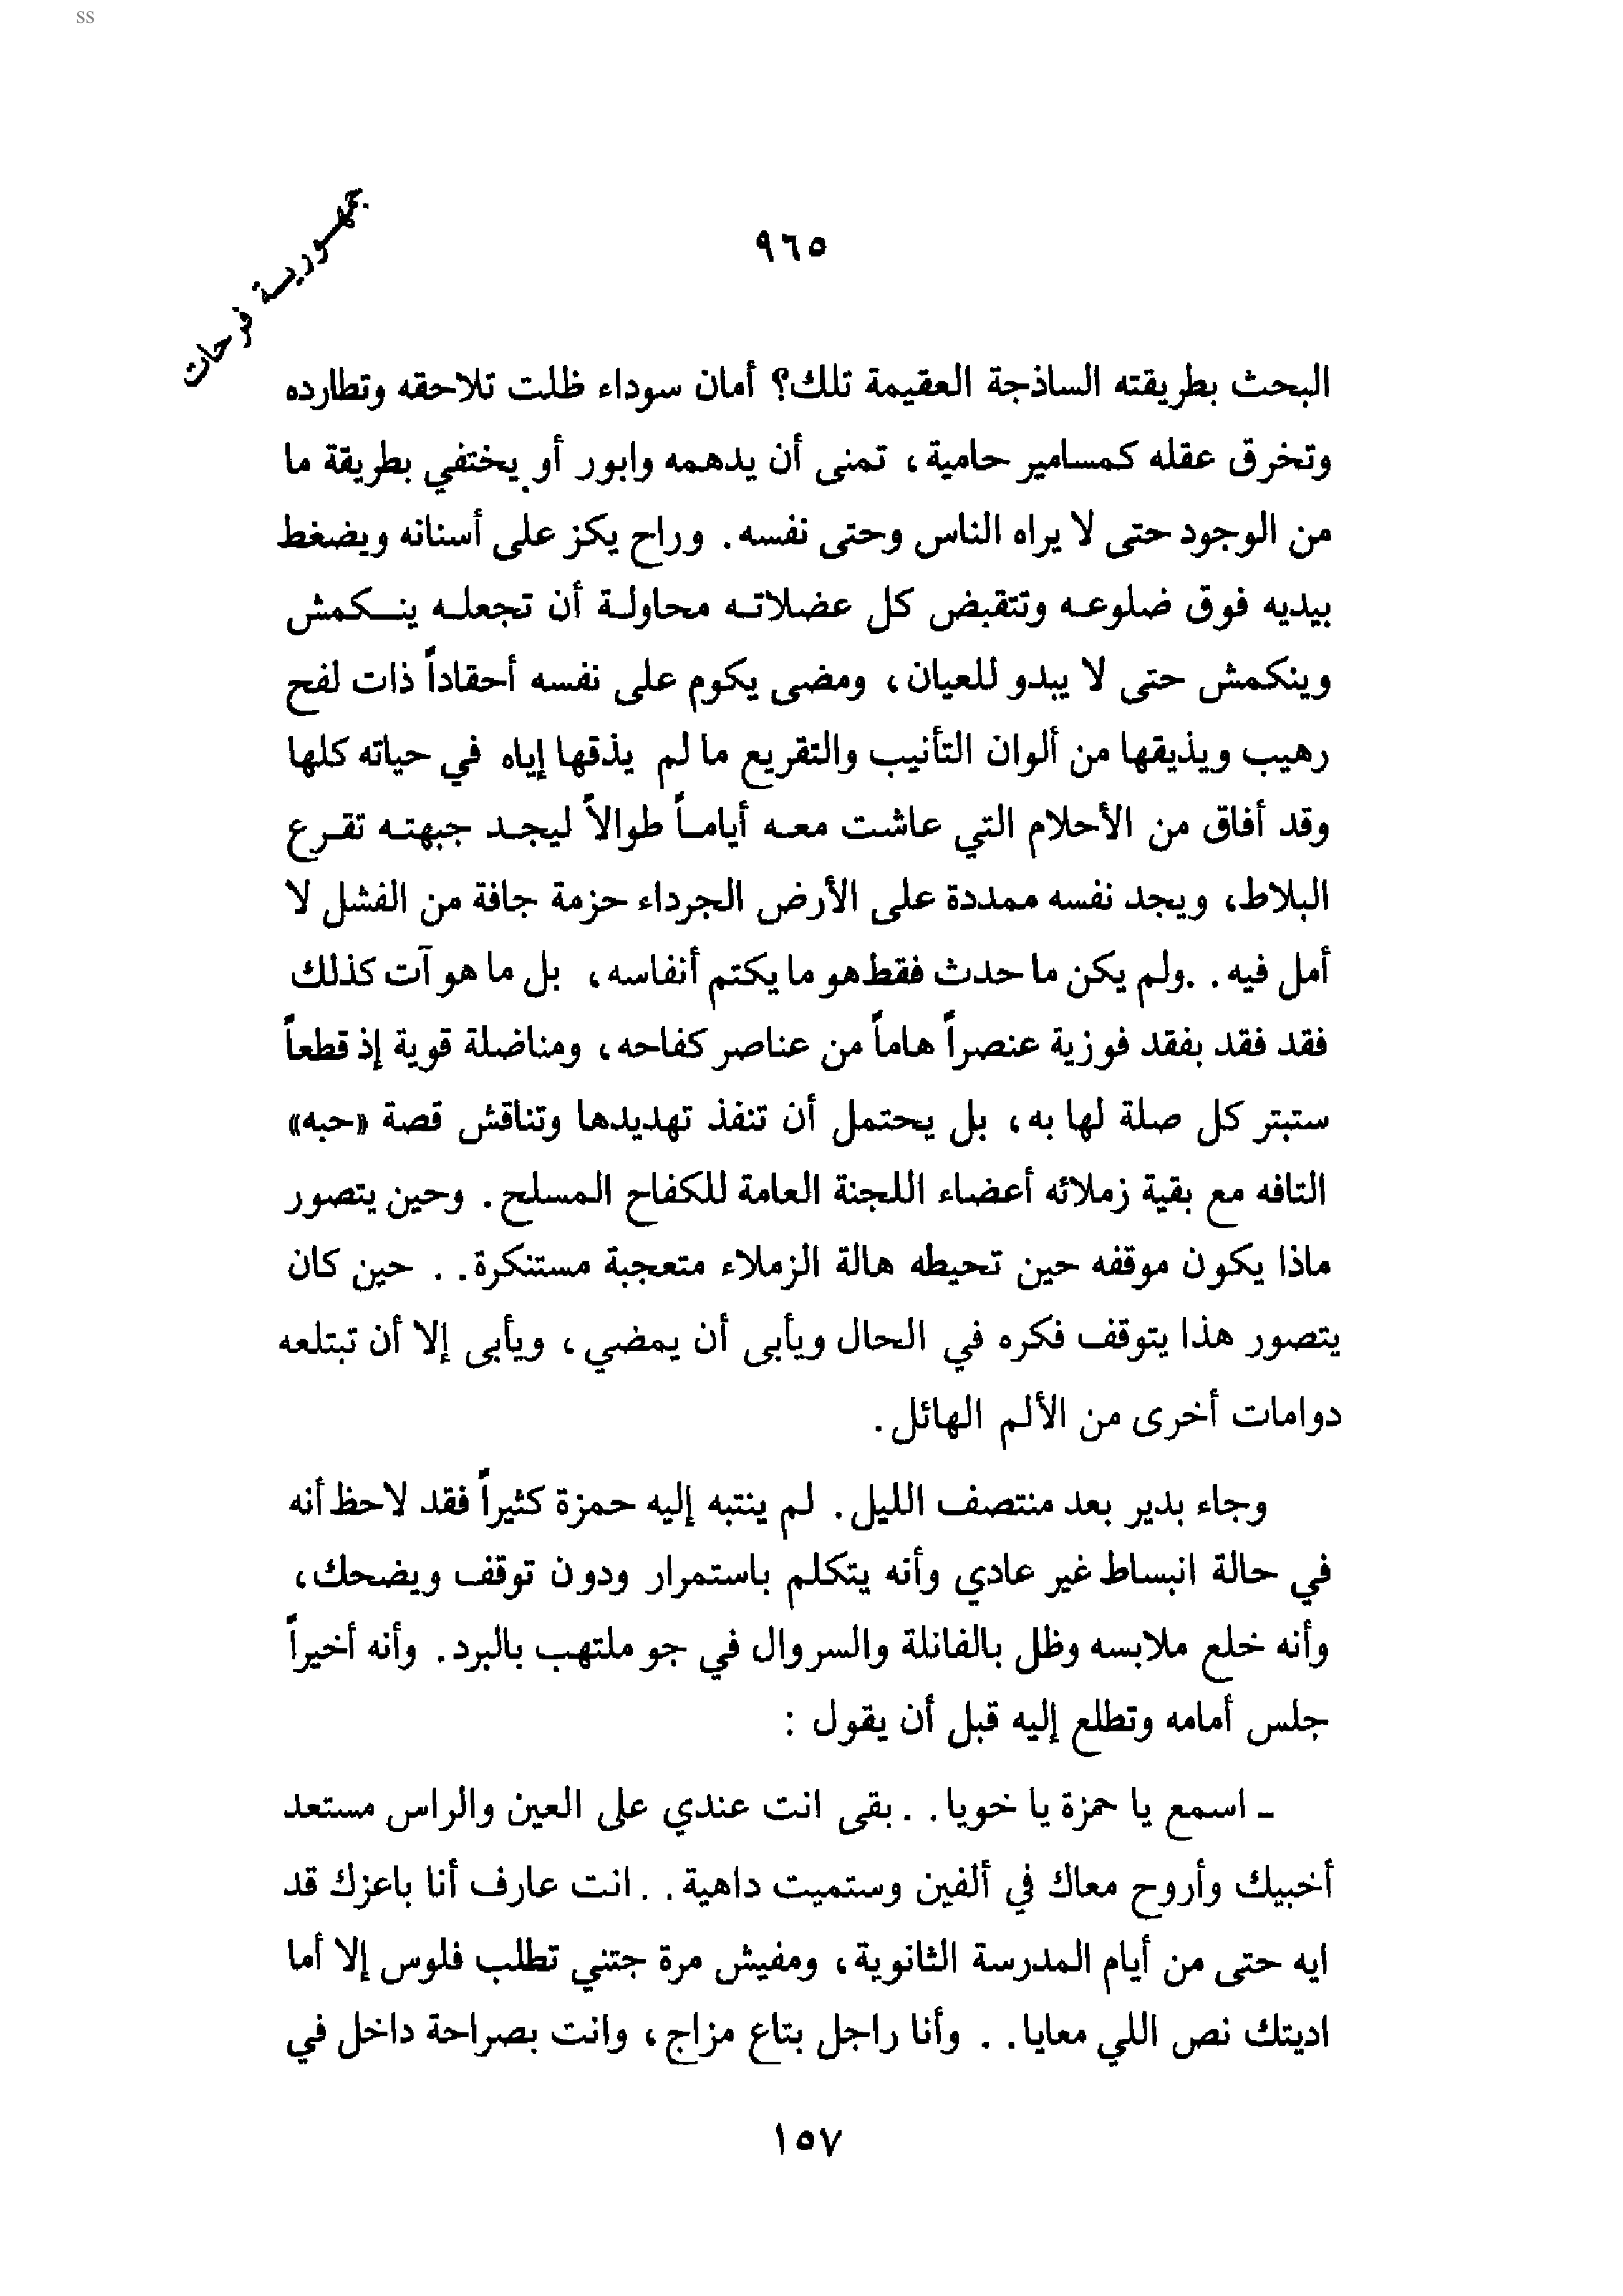 SS
جمهورية فرحات
٩٦٥
البحث بطريقته الساذجة العقيمة تلك؟ أمان سوداء ظلت تلاحقه وتطارده
وتخرق عقله كمسامير حامية، تمنى أن يدهمه وابور أو يختفي بطريقة ما
من الوجود حتى لا يراه الناس وحتى نفسه. وراح يكز على أسنانه ويضغط
بيديه فوق ضلوعه وتتقبض كل عضلاته محاولة أن تجعله ينكمش
وينكمش حتى لا يبدو للعيان، ومضى يكوم على نفسه أحقاداً ذات لفح
رهيب ويذيقها من ألوان التأنيب والتقريع ما لم يذقها إياه في حياته كلها
وقد أفاق من الأحلام التي عاشت معه أياماً طوالاً ليجد جبهته تقرع
البلاط، ويجد نفسه ممددة على الأرض الجرداء حزمة جافة من الفشل لا
أمل فيه. .ولم يكن ما حدث فقط هو ما يكتم أنفاسه، بل ما هو آت كذلك
فقد فقد بفقد فوزية عنصراً هاماً من عناصر كفاحه، ومناضلة قوية إذ قطعاً
ستبتر كل صلة لها به، بل يحتمل أن تنفذ تهديدها وتناقش قصة «حبه»
التافه مع بقية زملائه أعضاء اللجنة العامة للكفاح المسلح. وحين يتصور
ماذا يكون موقفه حين تحيطه هالة الزملاء متعجبة مستنكرة. . حين كان
يتصور هذا يتوقف فكره في الحال ويأبى أن يمضي، ويأبى إلا أن تبتلعه
دوامات أخرى من الألم الهائل.
وجاء بدير بعد منتصف الليل. لم ينتبه إليه حمزة كثيراً فقد لاحظ أنه
في حالة انبساط غير عادي وأنه يتكلم باستمرار ودون توقف ويضحك،
وأنه خلع ملابسه وظل بالفانلة والسروال في جو ملتهب بالبرد. وأنه أخيراً
جلس أمامه وتطلع إليه قبل أن يقول :
ـ اسمع يا حمزة يا خويا. . بقى انت عندي على العين والراس مستعد
أخبيك وأروح معاك في ألفين وستميت داهية. . انت عارف أنا باعزك قد
ايه حتى من أيام المدرسة الثانوية، ومفيش مرة جتني تطلب فلوس إلا أما
اديتك نص اللي معايا. . وأنا راجل بتاع مزاج، وانت بصراحة داخل في
١٥٧